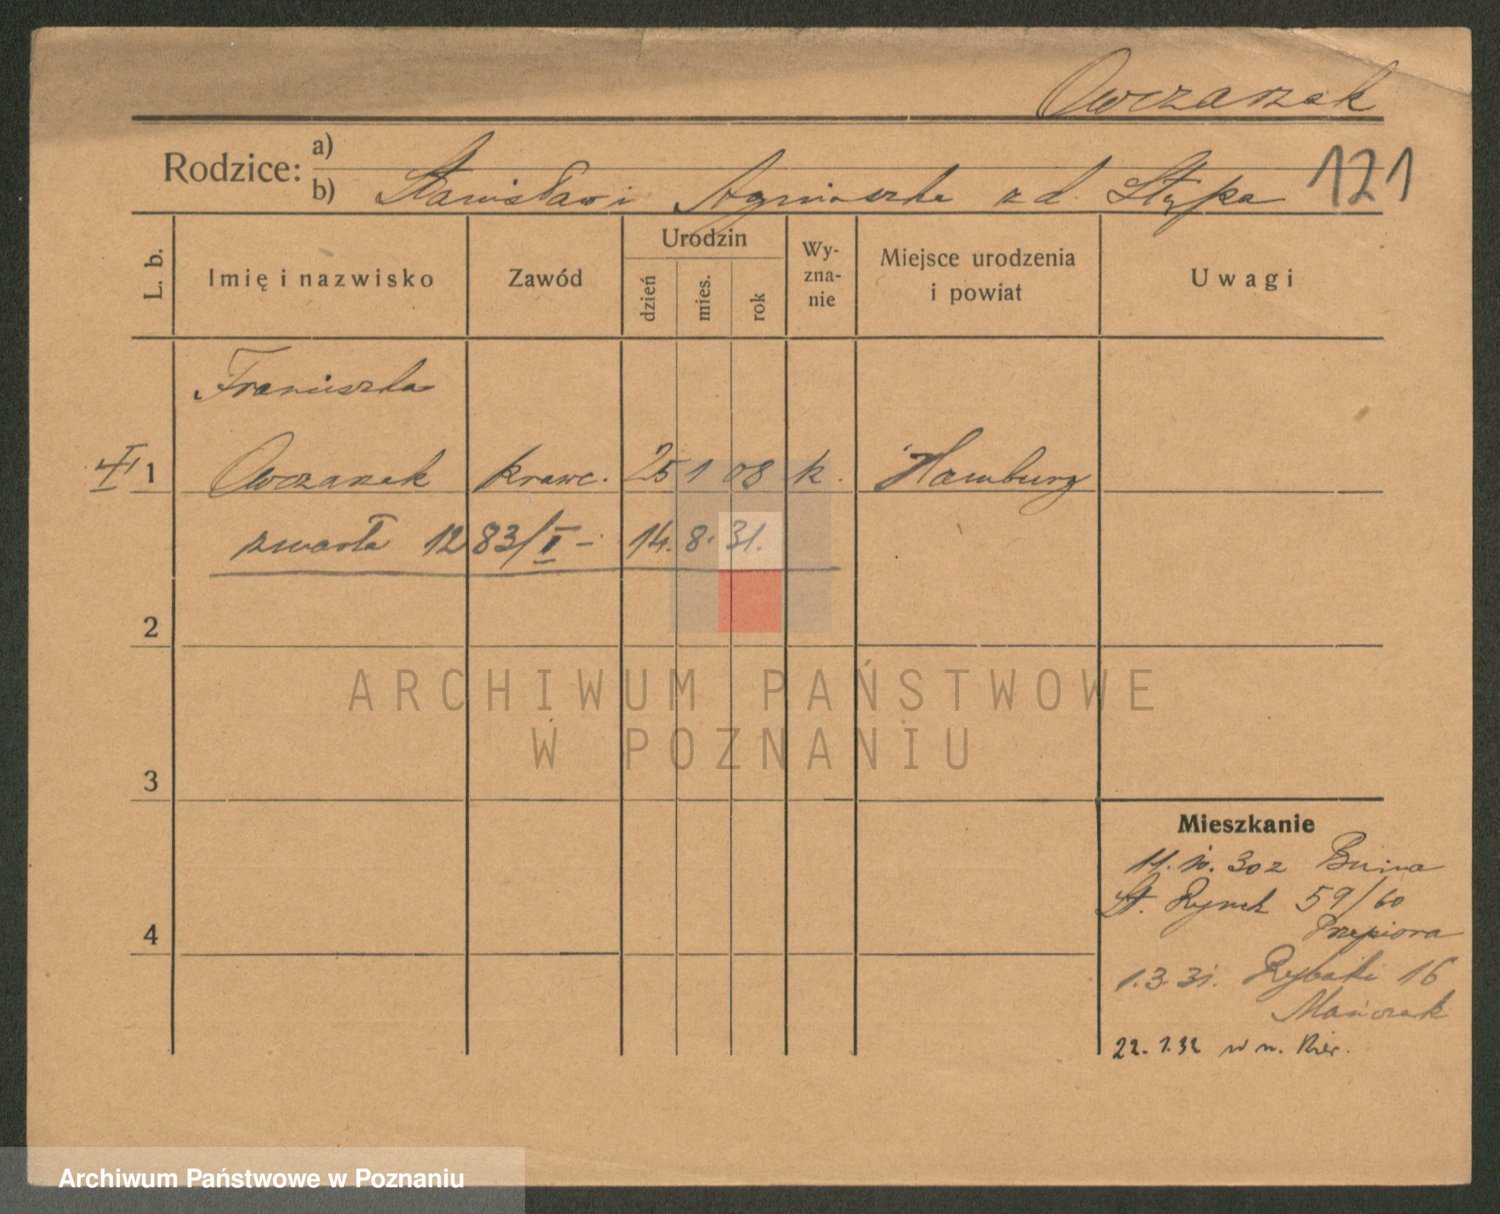 Owczarek
Rodzice: a)
b) Stanisław i Agnieszka z d. Stypa 121
L. b. Imię i nazwisko Zawód Urodzin dzień mies. rok Wyznanie Miejsce urodzenia i powiat Uwagi
Franciszka
1 Owczarek krawc. 25 1 08 k. Hamburg
zmarła 1283/I – 14. 8. 31.
2
ARCHIWUM PAŃSTWOWE
W POZNANIU
3
Mieszkanie
11. 10. 30 z Buina
St. Rynek 59/60
4
Przepiora
1.3.31. Rybaki 16
Mańczak
22. 1. 32 w n.
Archiwum Państwowe w Poznaniu